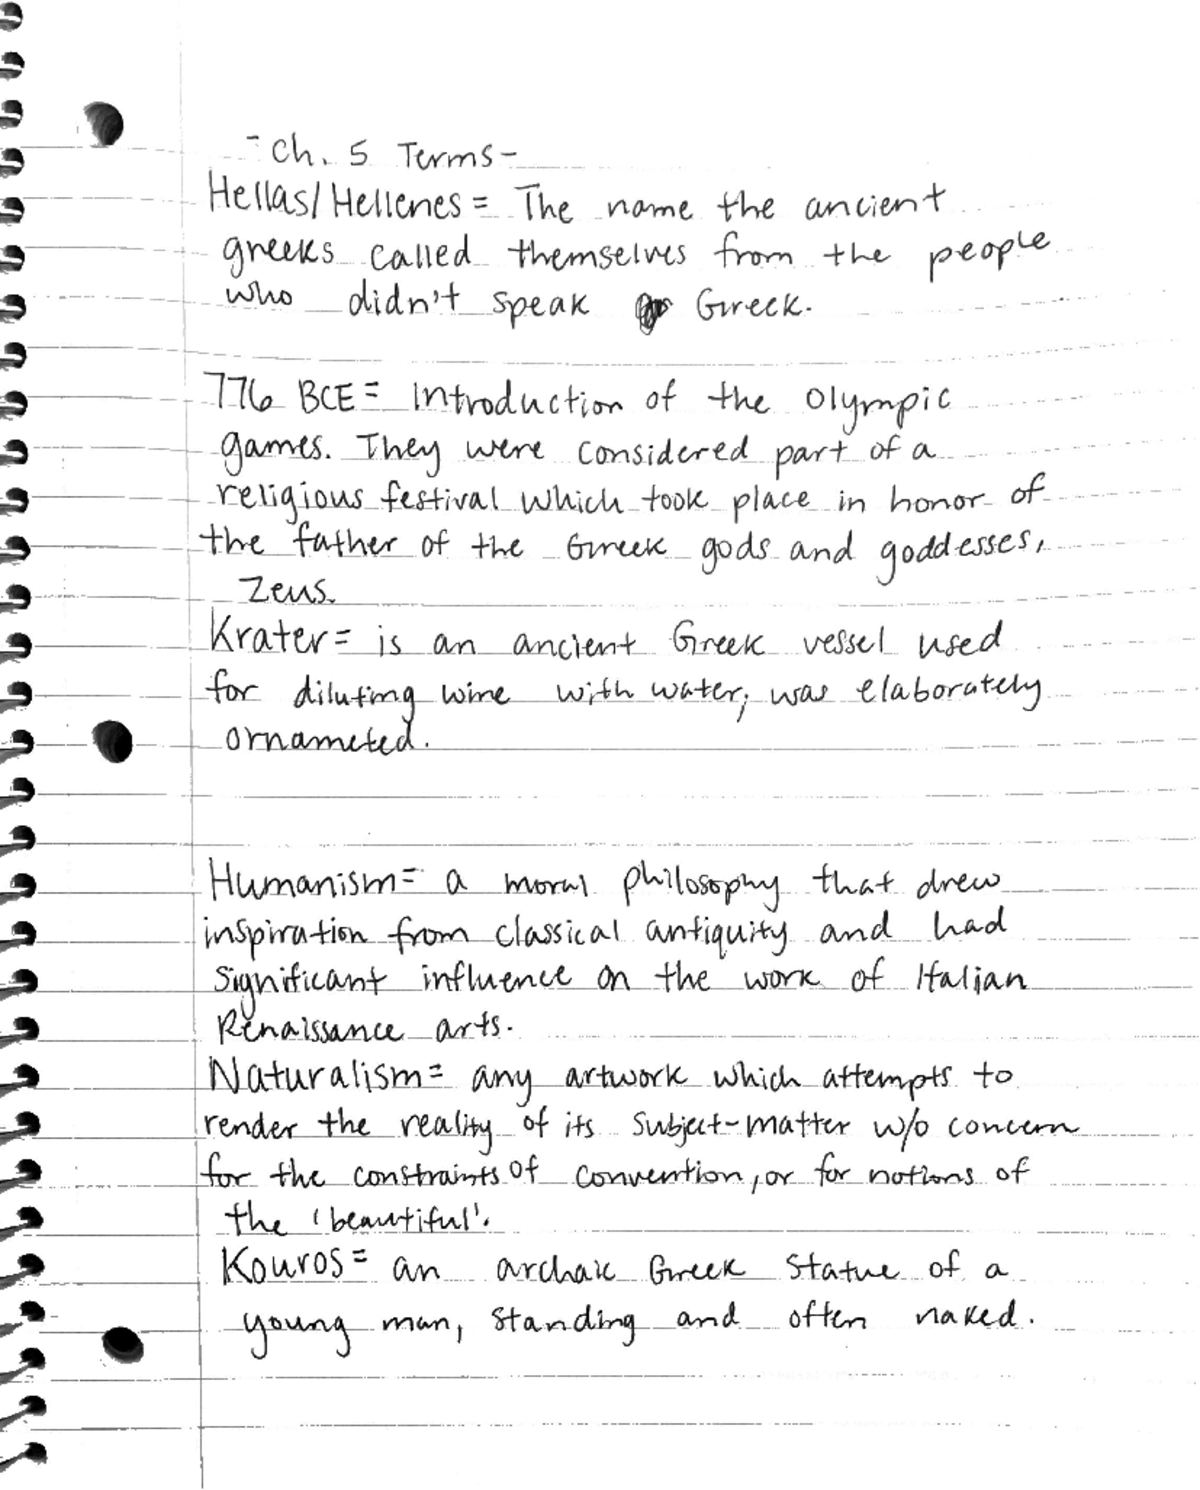 - Ch. 5 Terms -
Hellas/Hellenes = The name the ancient
greeks called themselves from the people
who didn't speak Greek.
776 BCE = Introduction of the Olympic
games. They were considered part of a
religious festival which took place in honor of
the father of the Greek gods and goddesses,
Zeus.
Krater = is an ancient Greek vessel used
for diluting wine with water; was elaborately
ornameted.
Humanism = a moral philosophy that drew
inspiration from classical antiquity and had
significant influence on the work of Italian
Renaissance arts.
Naturalism = any artwork which attempts to
render the reality of its subject-matter w/o concern
for the constraints of convention, or for notions of
the 'beautiful'.
Kouros = an archaic Greek statue of a
young man, standing and often naked.